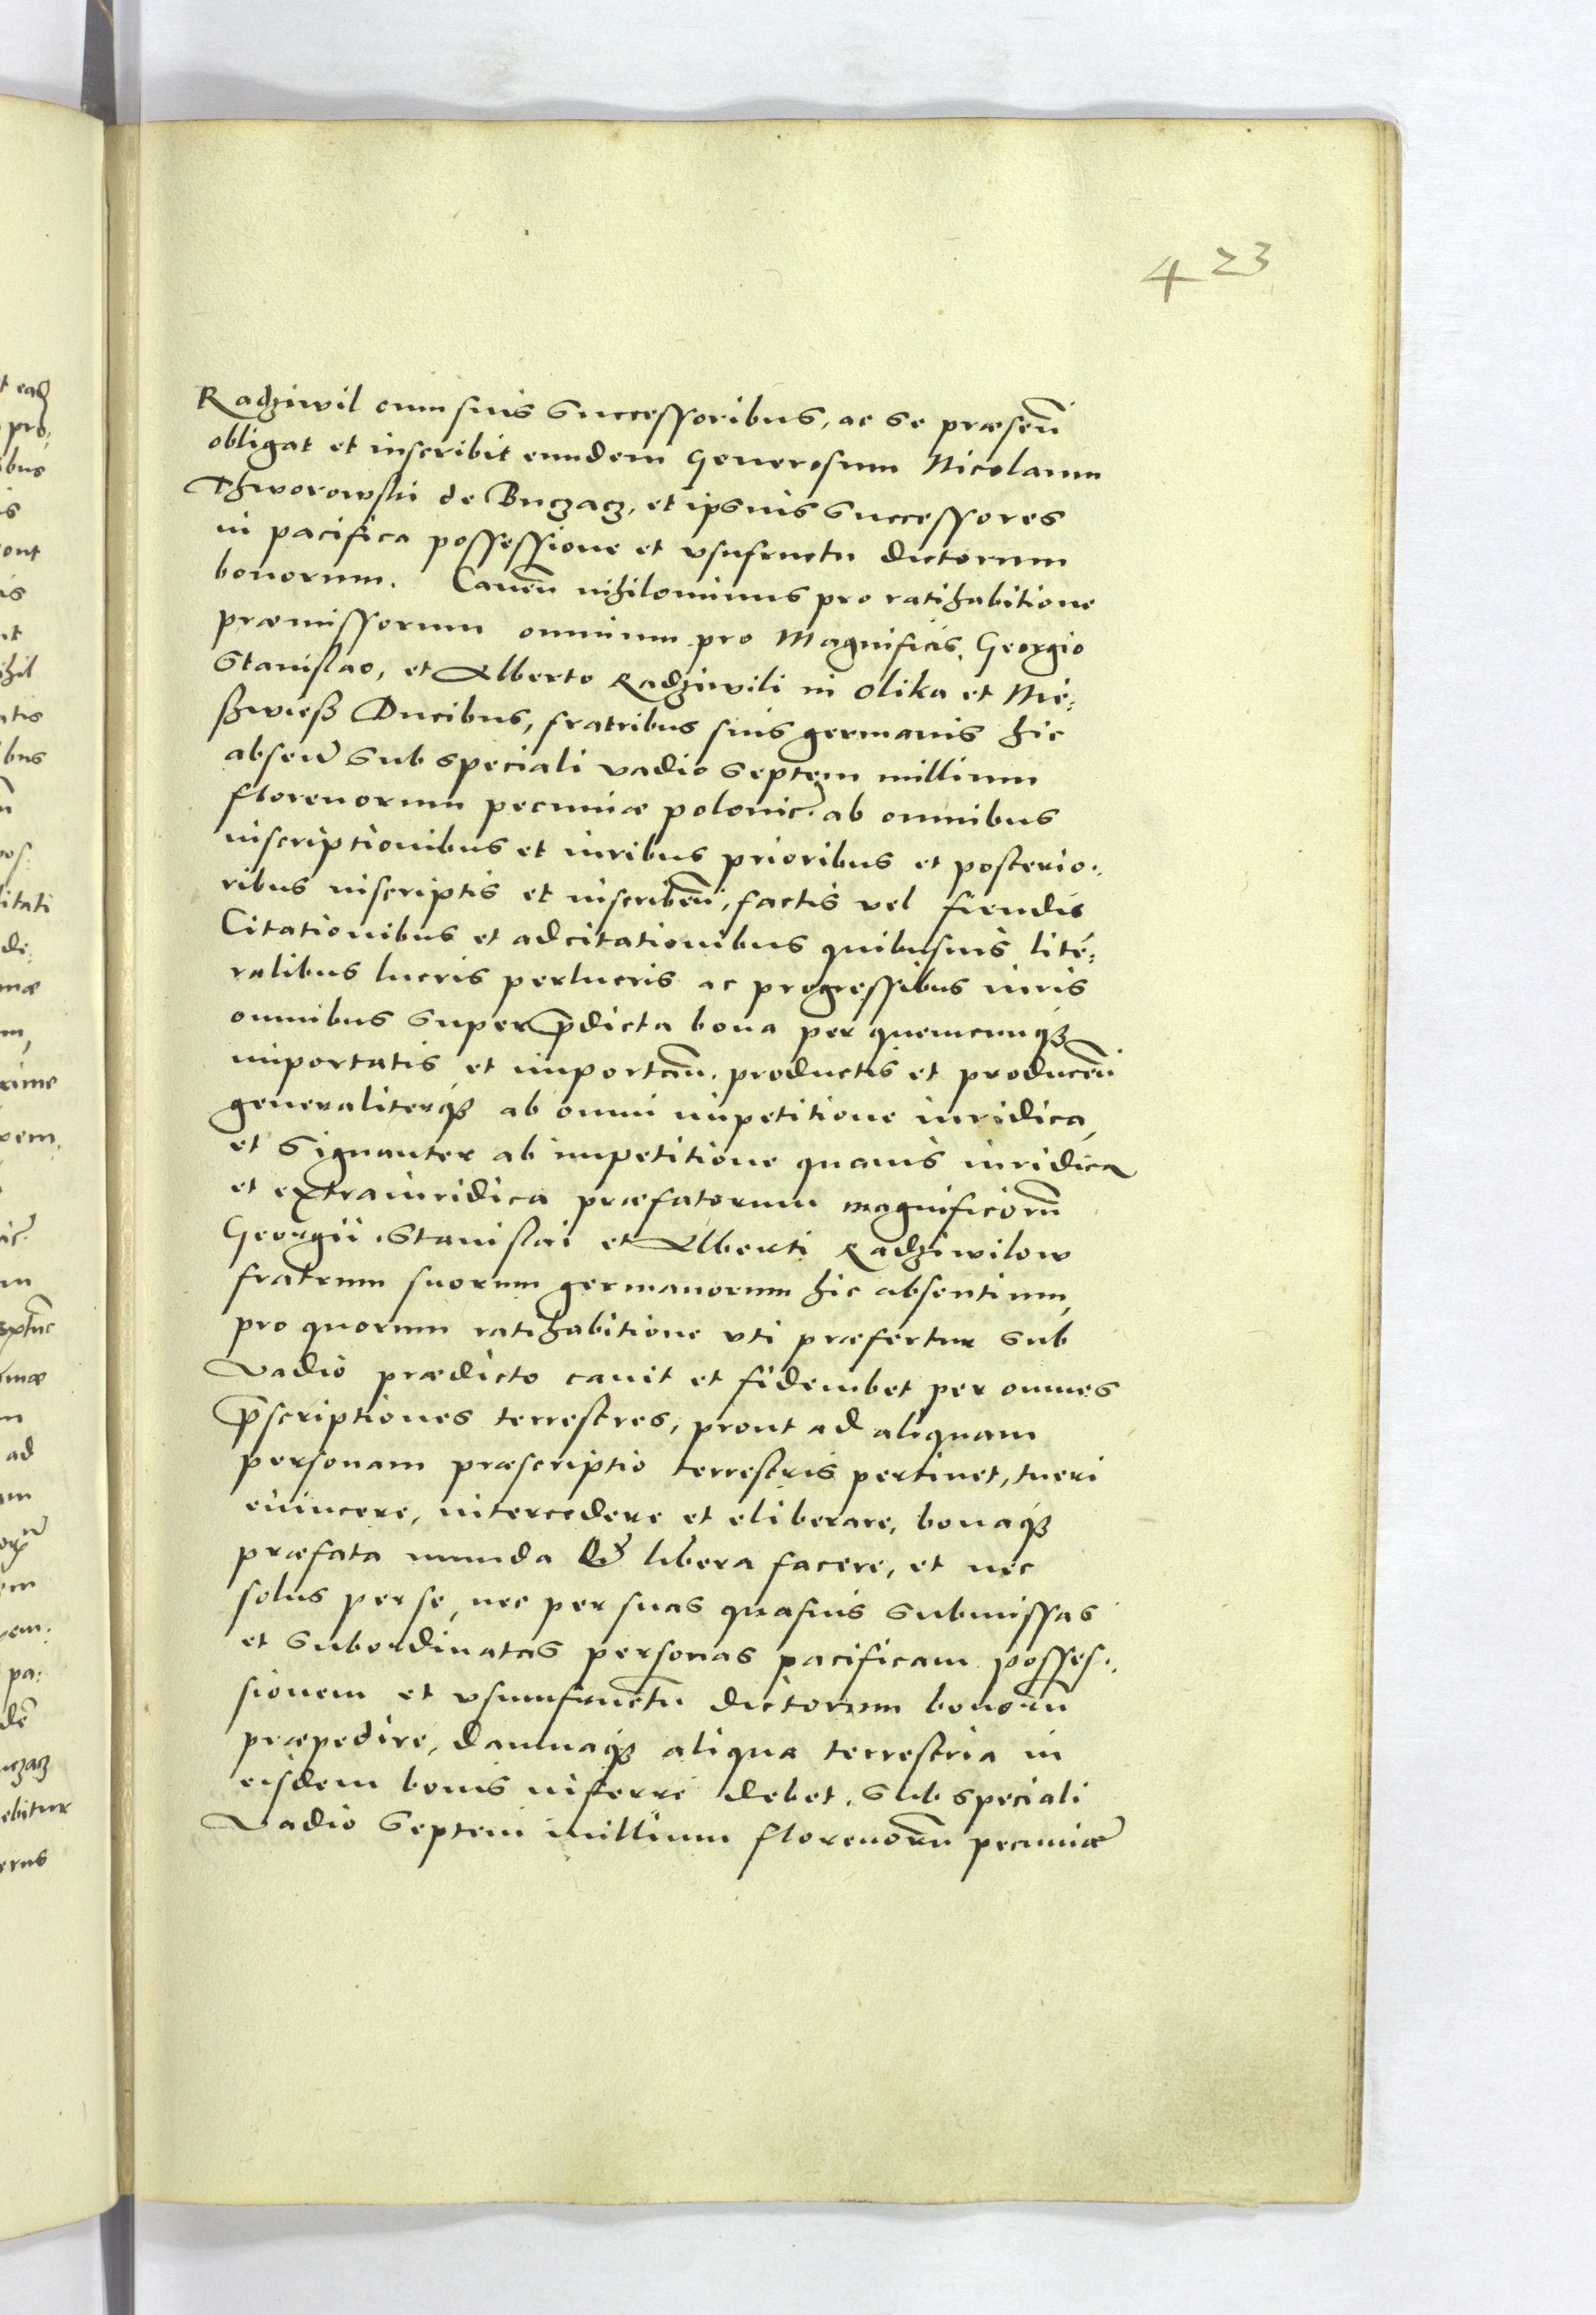 423
Radziwil cum suis Successoribus, ac se præsen̄
obligat et inscribit eundem Generosum Nicolaum
Thworowski de Buczacz, et ipsius Successores
in pacifica possessione et vsufructu dictorum
bonorum. Cauen̄ nihilominus pro ratihabitione
præmissorum omnium pro Magnificis, Georgio
Stanislao, et Alberto Radziwili in Olika et Nie:
ßwieß Ducibus, fratribus suis germanis hic
absen̄ Sub speciali vadio Septem millium
florenorum pecuniæ polonic. ab omnibus
inscriptionibus et iuribus prioribus et posterio:
ribus inscriptis et inscriben̄, factis vel fiendis
Citationibus et adcitationibus quibusuis, lite:
ralibus lucris perlucris ac progressibus iuris
omnibus Super p̄dicta bona per quemcunqȝ
importatis et importan̄. productis et producen̄
generaliterqȝ ab omni impetitione iuridica,
et Signanter ab impetitione quauis iuridica
et extraiuridica præfatorum magnificorū
Georgii. Stanislai et Alberti Radziwilow
fratrum suorum germanorum hic absentium,
pro quorum ratihabitione vti præfertur Sub
Vadio prædicto cauit et fideiubet per omnes
p̄scriptiones terrestres, prout ad aliquam
personam præscriptio terrestris pertinet, tueri
euincere, intercedere et eliberare, bonaqȝ
præfata munda & libera facere, et nec
solus per se, nec per suas quasuis Submissas
et Subordinatas personas pacificam posses:
sionem et vsumfructū dictorum bonorū
præpedire, damnaqȝ aliqua terrestria in
eisdem bonis inferre debet, Sub speciali
Vadio Septem millium florenorū pecuniæ